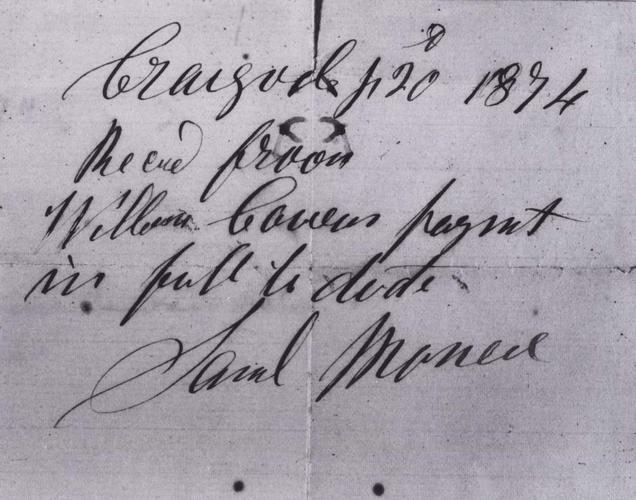 Craigvale 20 1874
Recd from
William Cowens paymt
in full to date
Saml